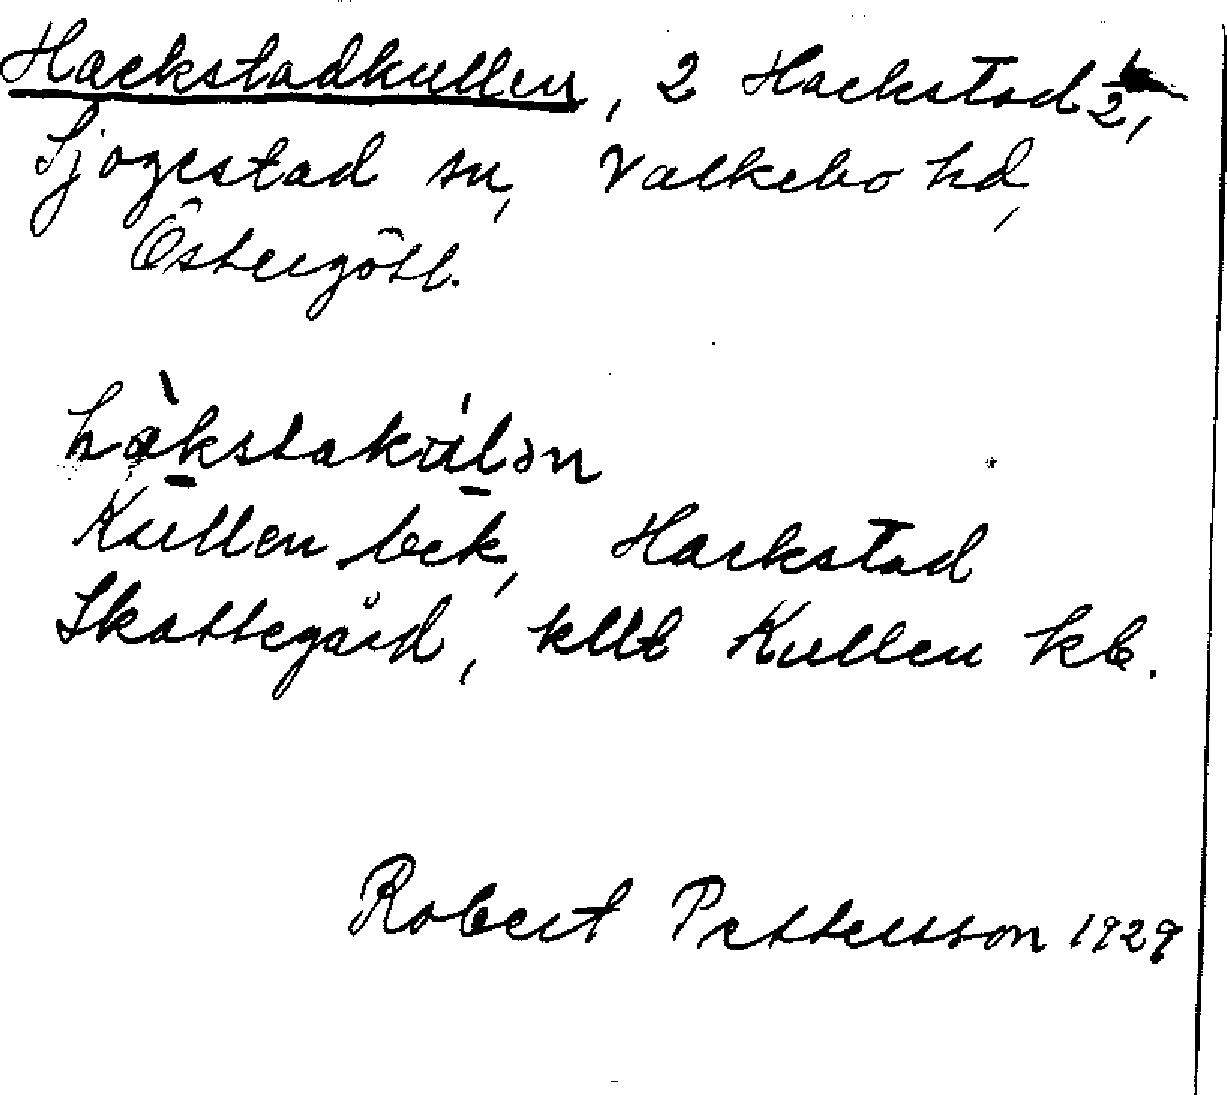 Hackstadkullen, 2 Hackstad 1/2,
Sjögestad sn, Valkebo hd,
Östergötl.
hàkstakúlən
Kullen bek, Hackstad
Skattegård, kllt Kullen kb.
Robert Pettersson 1929